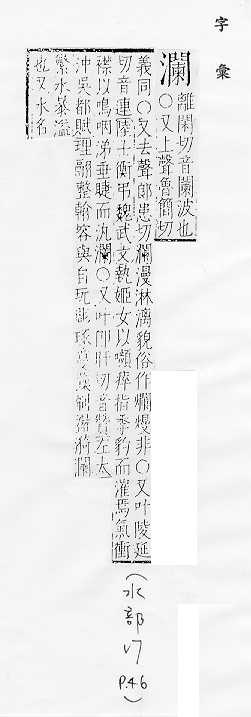 字彙
瀾
離閑切音闌波也
○又上聲魯簡切
義同○又去聲郎患切瀾漫淋漓貌俗作爛熳非○又叶陵延
切音連陸士衡弔魏武文執姬女以嚬瘁指季豹而漼焉氣衝
襟以嗚咽涕垂睫而汍瀾○又叶 切音 左太
沖吳都賦理翮整翰容與自玩彫琢蔓藻刷盪漪瀾
繁水暴溢
也又水名
(水部17 P.46)